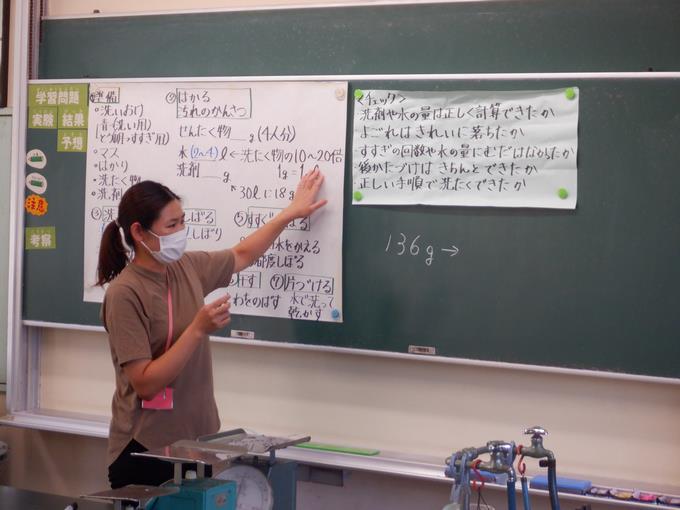 学習問題
実験
結果
予想
注意
考察
準備
・洗いおけ
・マス
・はかり
・洗たく物
・洗剤
②はかる
汚れのかんさつ
せんたく物 ___g(4人分)
水 ℓ ←洗たく物の10〜20倍
洗剤 __g
1g=1
30ℓに18g
③洗
しぼる
しぼり
⑤すすぐ
水をかえる
度しぼる
干す
⑦片づける
わをのばす
水で洗って
乾かす
<チェック>
洗剤や水の量は正しく計算できたか
よごれはきれいに落ちたか
すすぎの回数や水の量にむだはなかったか
後かたづけは きちんとできたか
正しい手順で洗たくできたか
136g→